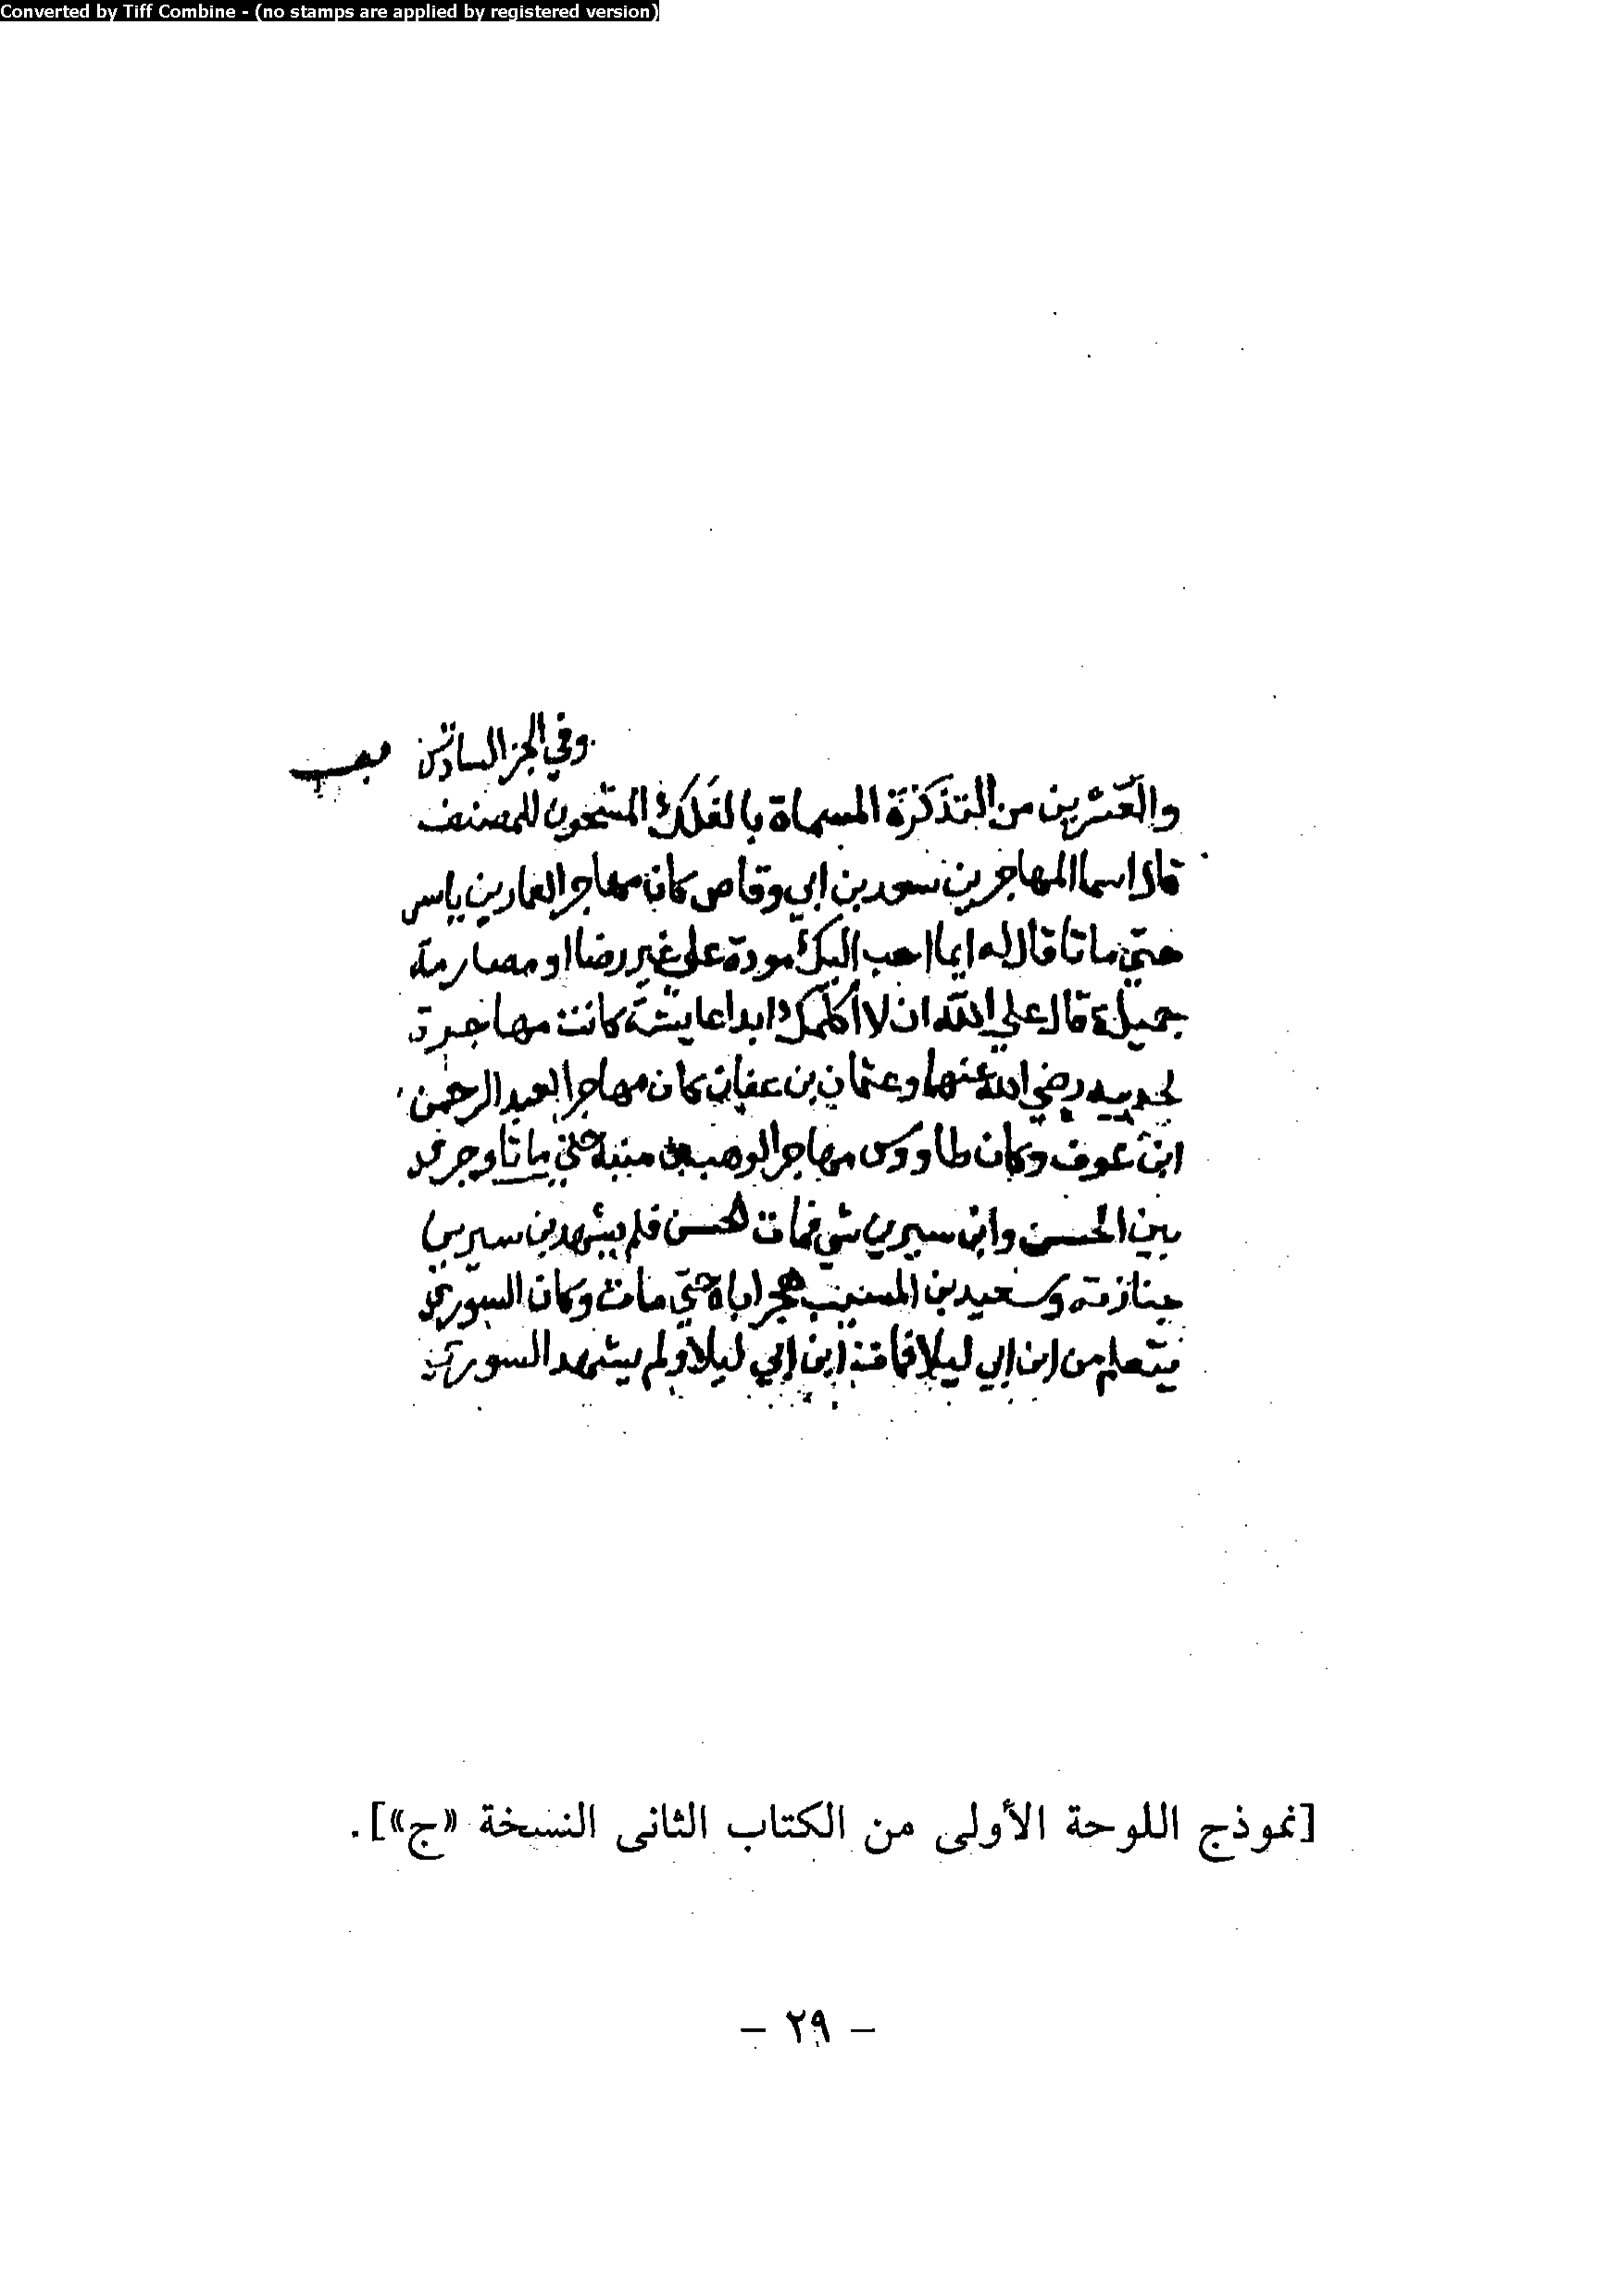 Converted by Tiff Combine - (no stamps are applied by registered version)
وفي الجز السادس
والعشرين من التذكرة المسماة بالفلك المشحون للمصنف
قال اسما المهاجرين سعد بن ابي وقاص كان مهاجرا لعمار بن ياسر
حتي ماتا قال له ايما احب اليك مودة علي غير رضا او مصارمة
جميلة قال علي الله ان لا اكلمك ابدا عايشة كانت مهاجرة
رضي الله عنها وعثمان بن عفان كان مهاجرا لعبد الرحمن
ابن عوف وكان طاووس مهاجرا لوهب بن منبه حتي ماتا وجري
بين الحسن وابن سيرين شي فمات الحسن فلم يشهد بن سيرين
جنازته وسعيد بن المسيب هجر اباه حتي مات وكان الثوري
يتعلم من ابن ابي ليلا فمات ابن ابي ليلا ولم يشهد الثوري
[نموذج اللوحة الأولى من الكتاب الثانى النسخة «ج»].
– ٢٩ –